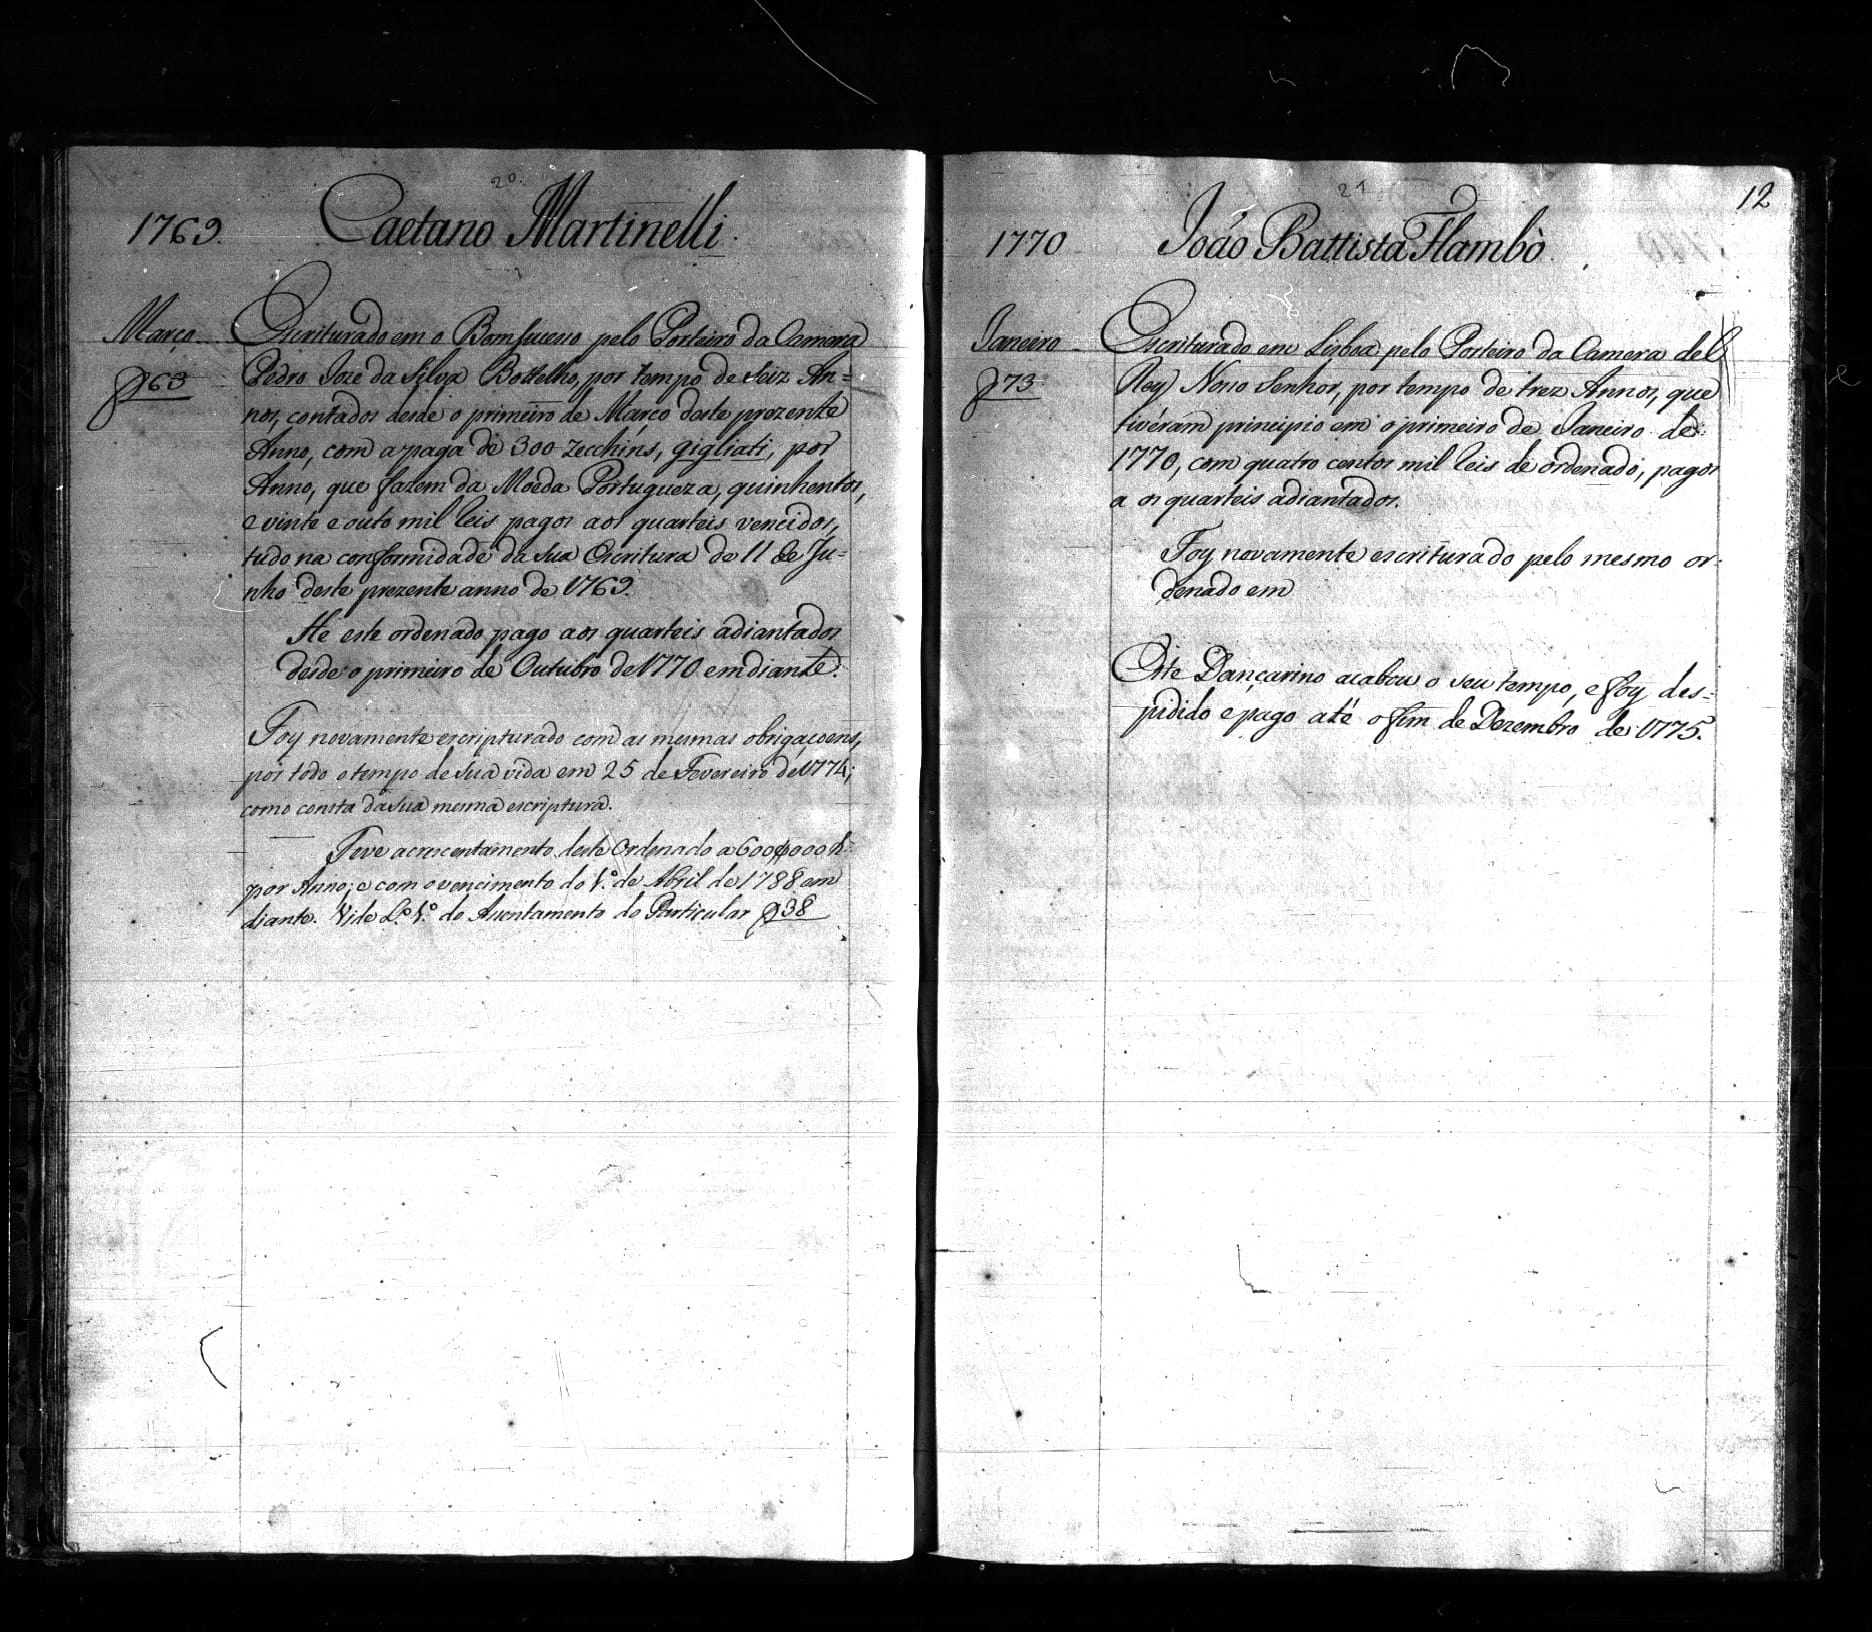 20.
1769. Caetano Martinelli.
Março Escriturado em o Bomsucesso pelo Porteiro da Camera
f 63 Pedro Joze da Silva Bottelho, por tempo de Seiz An=
nos, contados desde o primeiro de Março deste prezente
Anno, com a paga de 300 zecchins, gigliati, por
Anno, que fazem da Moeda Portugueza, quinhentos,
e vinte e outo mil Reis pagos aos quarteis vencidos,
tudo na conformidade da sua Escritura de 11 de Ju=
nho deste prezente anno de 1769.
He este ordenado pago aos quarteis adiantados
desde o primeiro de Outubro de 1770 em diante.
Foy novamente escripturado com as mesmas obrigaçoens,
por todo o tempo de sua vida em 25 de Fevereiro de 1774;
como consta da sua mesma escriptura.
Teve acrescentamento deste Ordenado a 600$000 r.
por Anno; e com o vencimento do 1.º de Abril de 1788 em
diante. Vide L.º 1.º do Assentamento do Particular f 38
12
21
1770 João Battista Flambò
Janeiro Escriturado em Lisboa pelo Porteiro da Camera del
f 73 Rey Nosso Senhor, por tempo de trez Annos, que
tivèram principio em o primeiro de Janeiro de
1770, com quatro centos mil Reis de ordenado, pagos
a os quarteis adiantados.
Foy novamente escriturado pelo mesmo or=
denado em
Este Dançarino acabou o seu tempo, e foy des=
pidido e pago até o fim de Dezembro de 1775.